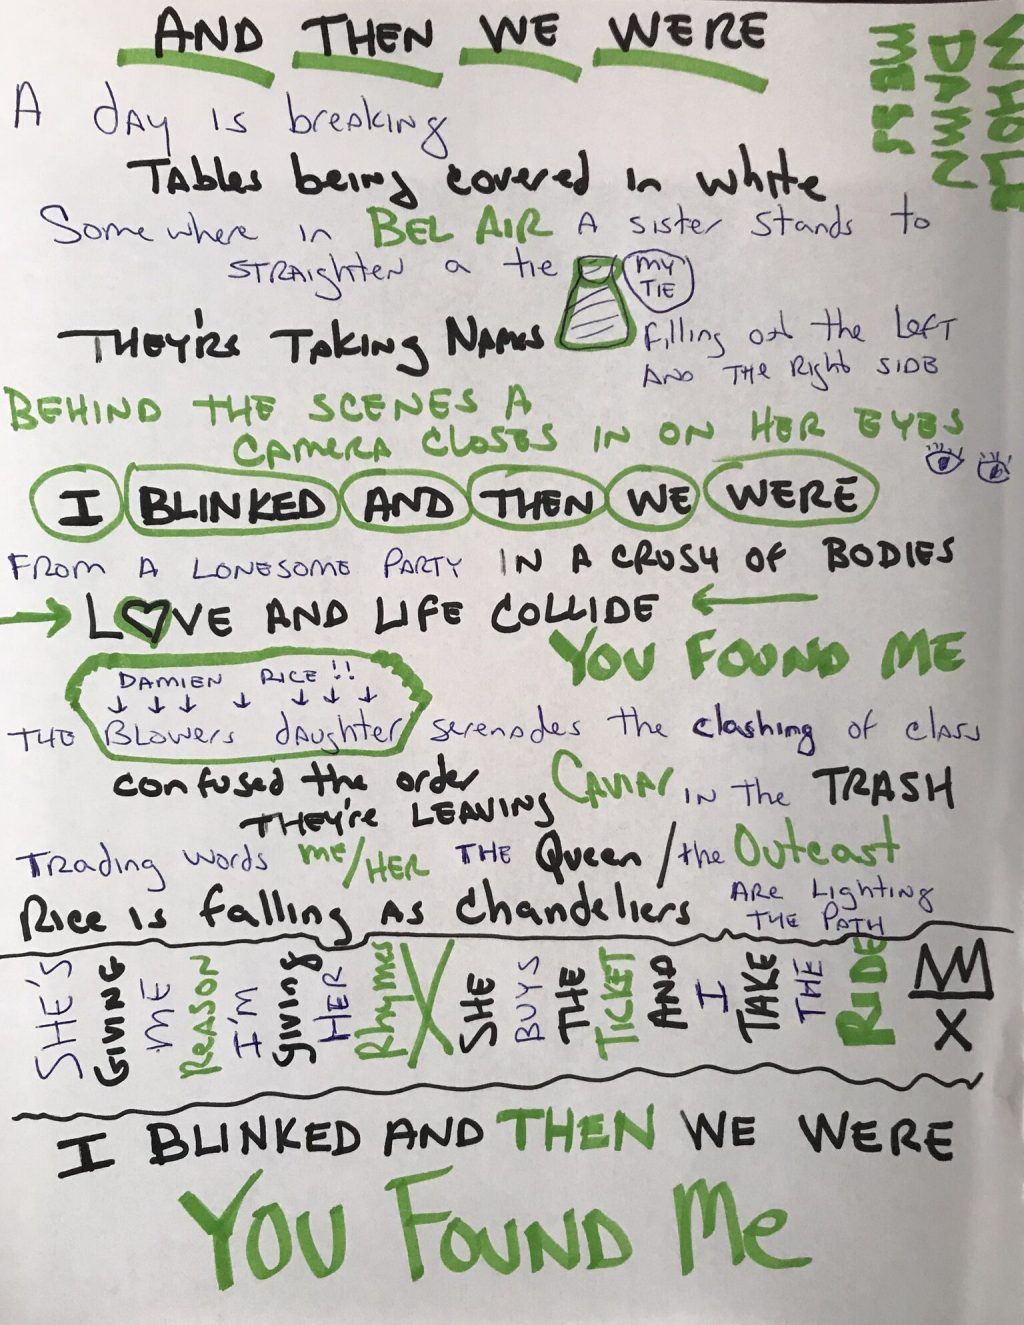 AND THEN WE WERE
WHOLE
DAMN
MESS
A dAy is breAking
TAbles being covered in white
Somewhere in BEL AIR A sister stands to
STRAighten a tie
MY
TIE
THEY'RE TAKING NAMES
filling out the LEFT
AND THE Right SIDE
BEHIND THE SCENES A
CAMERA CLOSES IN ON HER EYES
I BLINKED AND THEN WE WERE
FROM A LONESOME PARTY IN A CRUSH OF BODIES
LOVE AND LIFE COLLIDE
YOU FOUND ME
DAMIEN RICE!!
THE Blowers daughter serenades the clashing of class
confused the order
THEY'RE LEAVING CAVIAr IN the TRASH
Trading words me/HER THE Queen/the Outcast
Rice is falling As chandeliers ARE Lighting
THE PATH
SHE'S GIVING ME REASON I'M giving HER Rhymes X SHE BUYS THE TICKET AND I TAKE THE RIDE X
I BLINKED AND THEN WE WERE
YOU FOUND Me